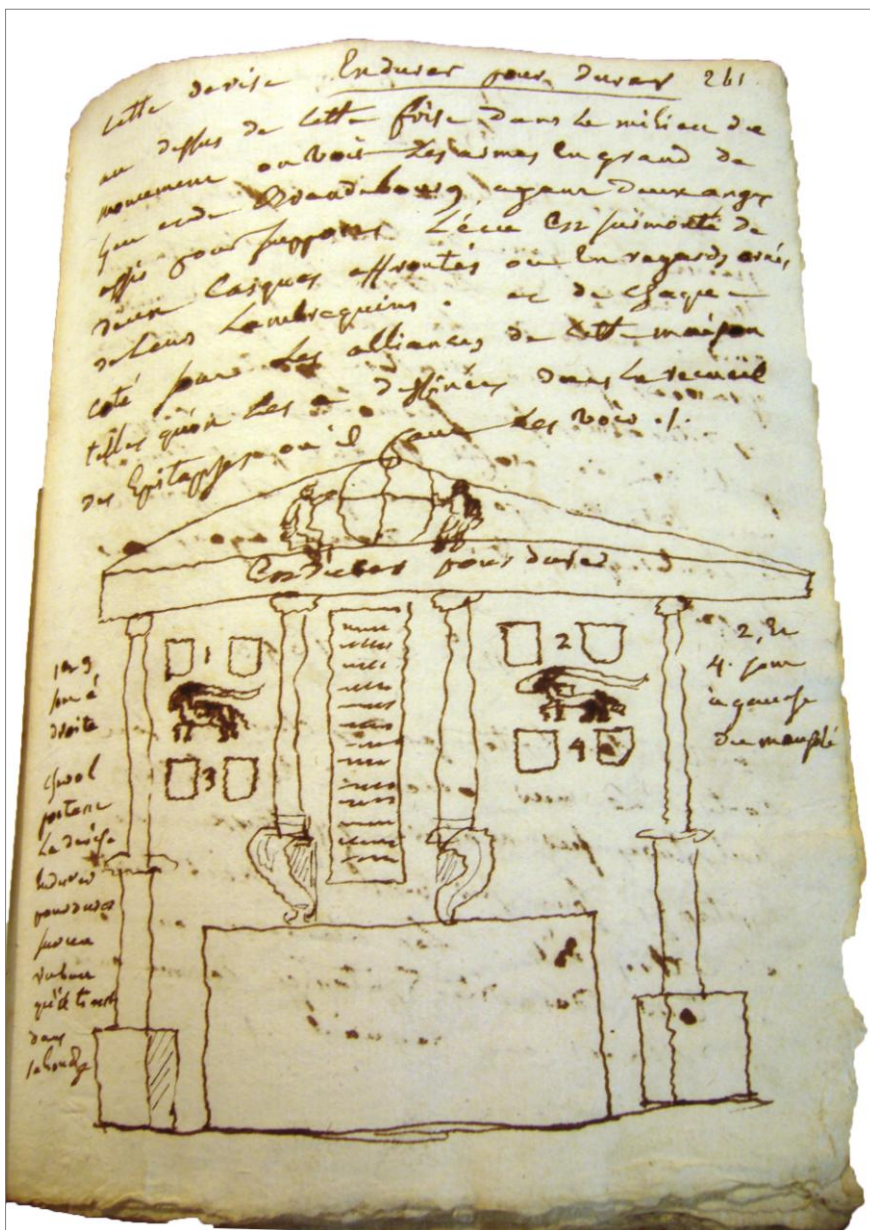 Cette devise Endurer pour durer 261.
au dessus de cette frise dans le milieu du
monument on voit les armes en grand de
et de Brandebourg, ayant deux anges
assis pour supports. L'écu est surmonté de
deux casques affrontés ou en regards ornés
de leurs lambrequins. et de chaque
coté sont les alliances de cette maison
telles qu'on les a dessinées dans le recueil
des Epitaphes où il faut les voir ./.
Endurer pour durer
1 et 3
sont à
droite
1
2
3
4
2, et
4. sont
à gauche
du mausolé
portant
la devise
endurer
pour durer
sur un
ruban
qu'il tient
dans
la bouche